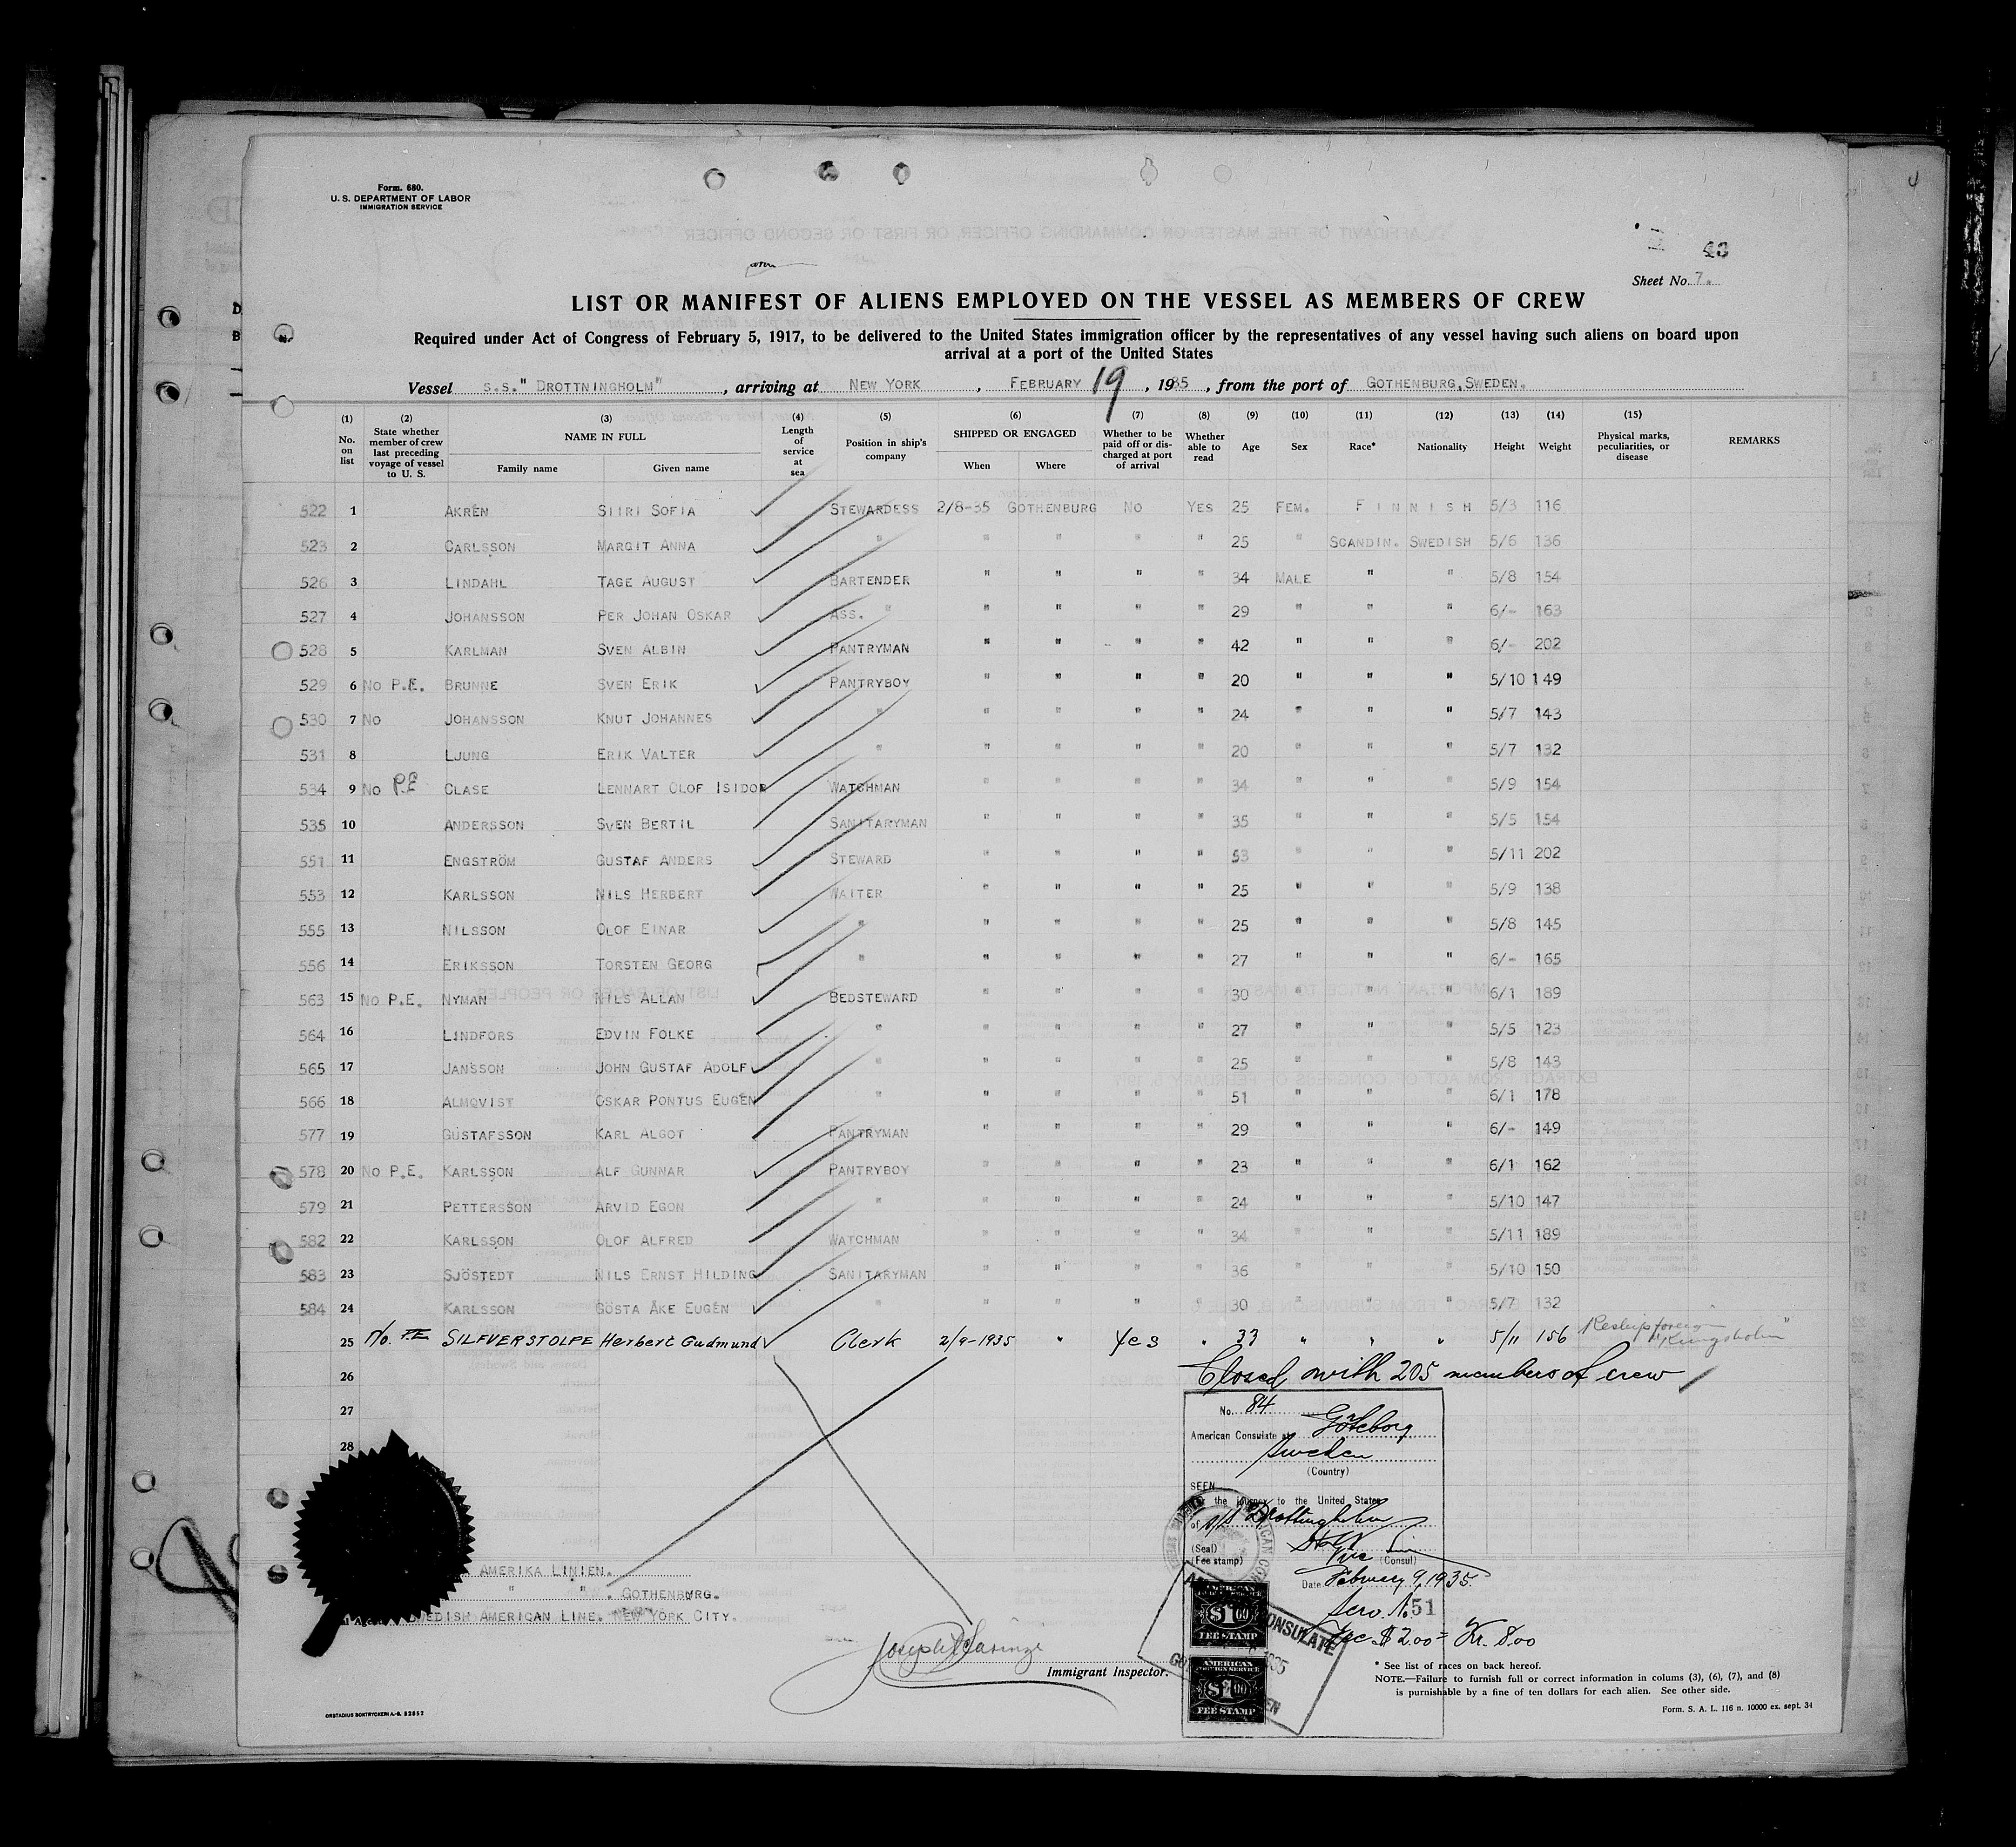 Form. 680.
U. S. DEPARTMENT OF LABOR
IMMIGRATION SERVICE
Sheet No. 7.
LIST OR MANIFEST OF ALIENS EMPLOYED ON THE VESSEL AS MEMBERS OF CREW
Required under Act of Congress of February 5, 1917, to be delivered to the United States immigration officer by the representatives of any vessel having such aliens on board upon
arrival at a port of the United States
Vessel S.S." DROTTNINGHOLM" , arriving at NEW YORK , FEBRUARY 19 , 1935 , from the port of GOTHENBURG, SWEDEN.
(1) (2) (3) (4) (5) (6) (7) (8) (9) (10) (11) (12) (13) (14) (15)
No. on list State whether member of crew last preceding voyage of vessel to U. S. NAME IN FULL Family name Given name Length of service at sea Position in ship's company SHIPPED OR ENGAGED When Where Whether to be paid off or discharged at port of arrival Whether able to read Age Sex Race* Nationality Height Weight Physical marks, peculiarities, or disease REMARKS
522 1 AKRÉN SIIRI SOFIA STEWARDESS 2/8-35 GOTHENBURG NO YES 25 FEM. FINNISH 5/3 116
523 2 CARLSSON MARGIT ANNA " " " " " 25 " SCANDIN. SWEDISH 5/6 136
526 3 LINDAHL TAGE AUGUST BARTENDER " " " " 34 MALE " " 5/8 154
527 4 JOHANSSON PER JOHAN OSKAR ASS. " " " " " 29 " " " 6/- 163
528 5 KARLMAN SVEN ALBIN PANTRYMAN " " " " 42 " " " 6/- 202
529 6 NO P.E. BRUNNE SVEN ERIK PANTRYBOY " " " " 20 " " " 5/10 149
530 7 NO JOHANSSON KNUT JOHANNES " " " " " 24 " " " 5/7 143
531 8 LJUNG ERIK VALTER " " " " " 20 " " " 5/7 132
534 9 NO P.E CLASE LENNART OLOF ISIDOR WATCHMAN " " " " 34 " " " 5/9 154
535 10 ANDERSSON SVEN BERTIL SANITARYMAN " " " " 35 " " " 5/5 154
551 11 ENGSTRÖM GUSTAF ANDERS STEWARD " " " " 53 " " " 5/11 202
553 12 KARLSSON NILS HERBERT WAITER " " " " 25 " " " 5/9 138
555 13 NILSSON OLOF EINAR " " " " " 25 " " " 5/8 145
556 14 ERIKSSON TORSTEN GEORG " " " " " 27 " " " 6/- 165
563 15 NO P.E. NYMAN NILS ALLAN BEDSTEWARD " " " " 30 " " " 6/1 189
564 16 LINDFORS EDVIN FOLKE " " " " " 27 " " " 5/5 123
565 17 JANSSON JOHN GUSTAF ADOLF " " " " " 25 " " " 5/8 143
566 18 ALMQVIST OSKAR PONTUS EUGÉN " " " " " 51 " " " 6/1 178
577 19 GUSTAFSSON KARL ALGOT PANTRYMAN " " " " 29 " " " 6/- 149
578 20 NO P.E. KARLSSON ALF GUNNAR PANTRYBOY " " " " 23 " " " 6/1 162
579 21 PETTERSSON ARVID EGON " " " " " 24 " " " 5/10 147
582 22 KARLSSON OLOF ALFRED WATCHMAN " " " " 34 " " " 5/11 189
583 23 SJÖSTEDT NILS ERNST HILDING SANITARYMAN " " " " 36 " " " 5/10 150
584 24 KARLSSON GÖSTA ÅKE EUGÉN " " " " " 30 " " " 5/7 132
25 No. P.E SILFVERSTOLPE Herbert Gudmund Clerk 2/9-1935 " Yes " 33 " " " 5/11 156 Reship foreign "Kungsholm"
26 Closed with 205 members of crew
27
28
No. 84
American Consulate at Göteborg
Sweden
(Country)
SEEN
the journey to the United States
of s/s Drottningholm
(Seal)
(Fee stamp) Vice (Consul)
Date February 9, 1935.
Serv. No. 51
Fee $2.00 = Kr. 8.00
AMERICAN FOREIGN SERVICE
$1.00
FEE STAMP
AMERICAN FOREIGN SERVICE
$1.00
FEE STAMP
CONSULATE
AMERIKA LINIEN.
" " . GOTHENBURG.
SWEDISH AMERICAN LINE. NEW YORK CITY.
Immigrant Inspector.
* See list of races on back hereof.
NOTE.—Failure to furnish full or correct information in colums (3), (6), (7), and (8)
is punishable by a fine of ten dollars for each alien. See other side.
ORSTADIUS BOKTRYCKERI A.-B. 52852
Form. S. A. L. 116 n. 10000 ex. sept. 34